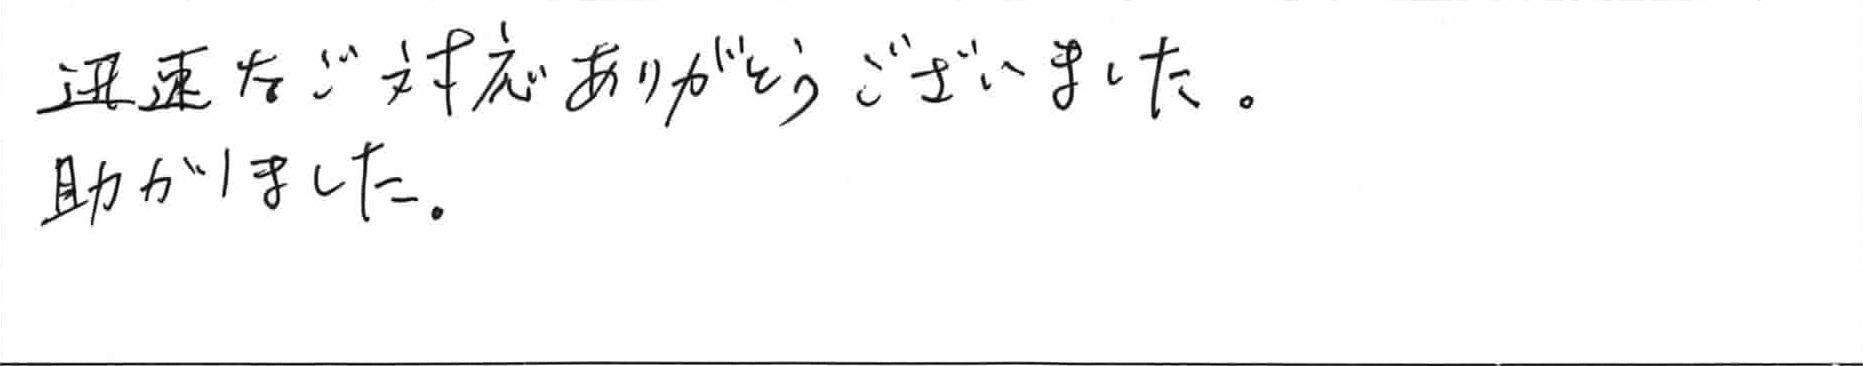 迅速なご対応ありがとうございました。
助がりました。